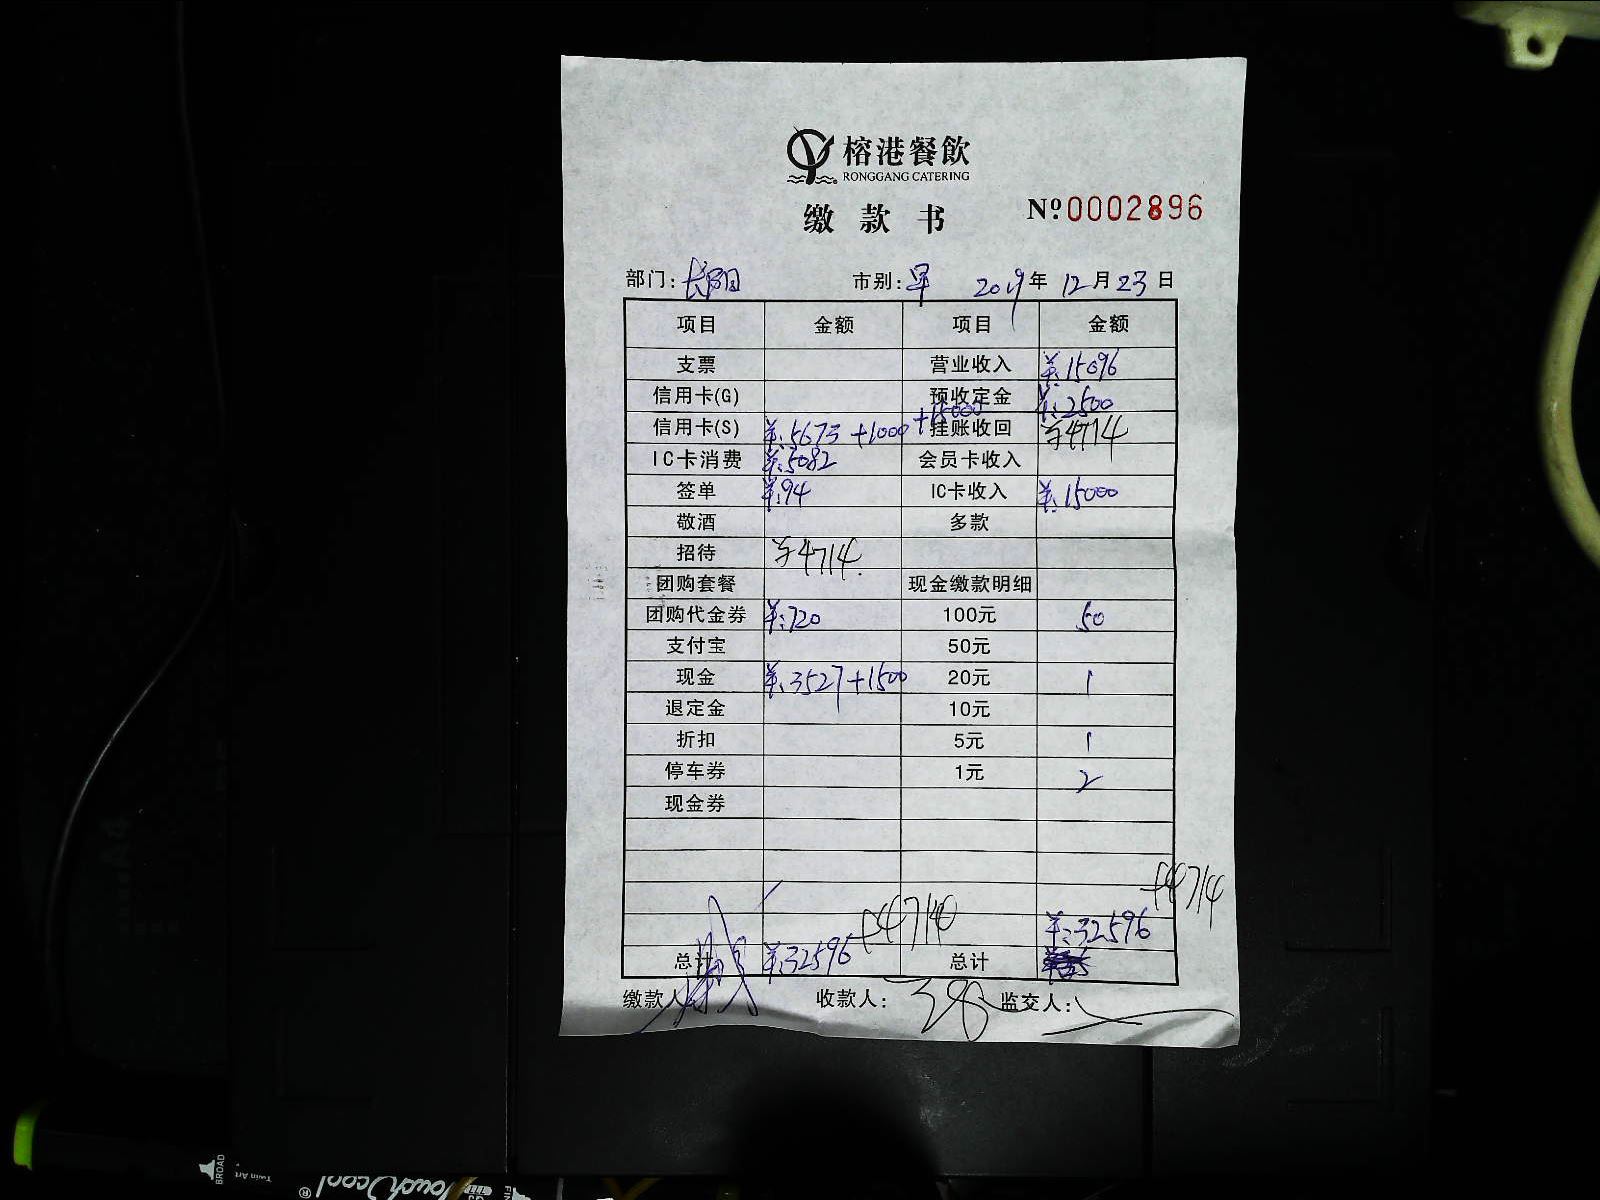 榕港餐飲
RONGGANG CATERING
缴款书 Nº0002896
部门: 长阳 市别: 早 2019年12月23日
项目 金额 项目 金额
支票 营业收入 ¥:15096
信用卡(G) 预收定金 ¥:2500
信用卡(S) ¥:5673+1000+15000 挂账收回 ¥4714
IC卡消费 ¥:5082 会员卡收入
签单 ¥:94 IC卡收入 ¥:15000
敬酒 多款
招待 ¥4714
团购套餐 现金缴款明细
团购代金券 ¥:720 100元 50
支付宝 50元
现金 ¥:3527+1500 20元 1
退定金 10元
折扣 5元 1
停车券 1元 2
现金券
+4714 +4714
¥:32596
总计 ¥:32596 总计
缴款人 收款人: 监交人:
BROAD
Twin Art
Touch cool ®